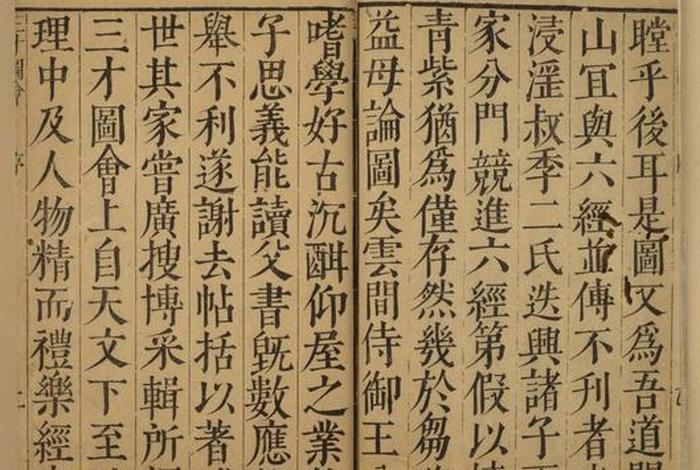 瞠乎後耳是圖又為吾道
山宜與六經並傳不刋者
浸滛叔季二氏迭興諸子
家分門競進六經第假以
青紫猶為僅存然幾於芻
益母論圖矣雲間侍御王
嗜學好古沉酣仰屋之業
子思義能讀父書旣數應
舉不利遂謝去帖括以著
世其家嘗廣搜博采輯所
三才圖會上自天文下至
理中及人物精而禮樂經
三才圖會 序